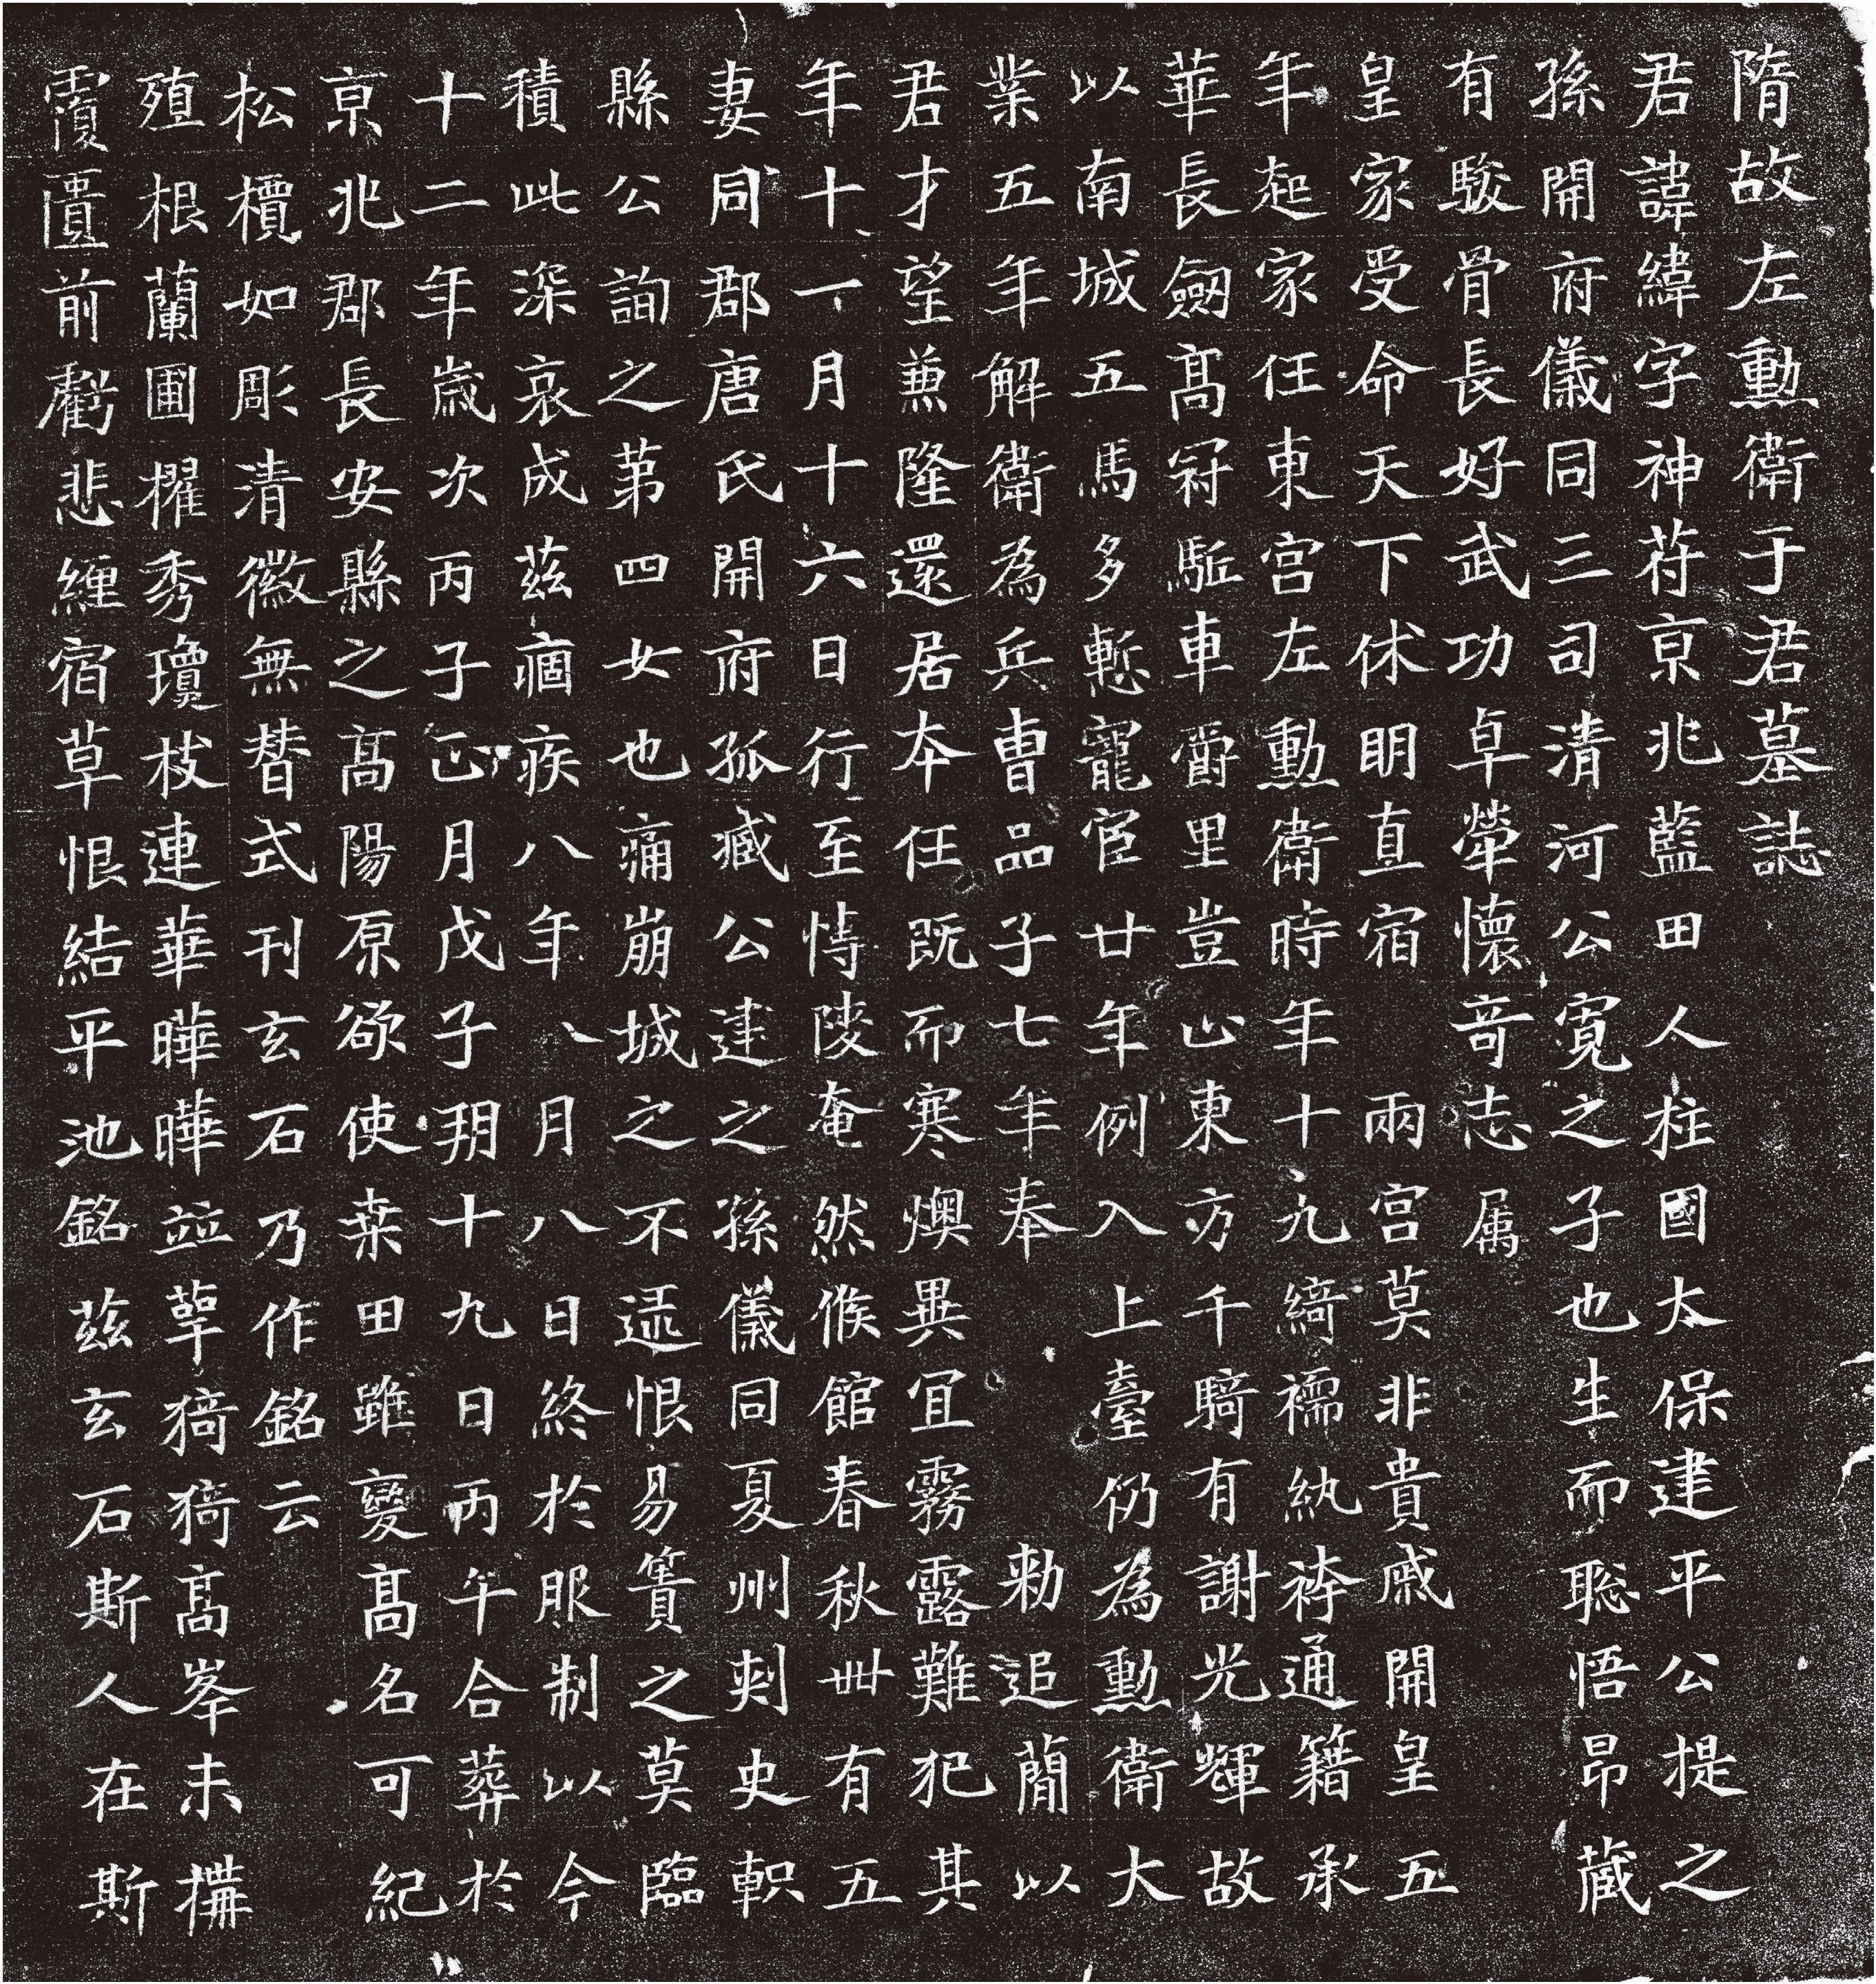 隋故左勳衛于君墓誌
君諱緯字神苻京兆藍田人柱國大保建平公提之
孫開府儀同三司清河公寬之子也生而聡悟昂藏
有駿骨長好武功卓犖懷奇志属
皇家受命天下休明直宿兩宮莫非貴戚開皇五
年起家任東宮左勳衛時年十九綺襦紈袴通籍承
華長劔髙冠駈車爵里豈止東方千騎有謝光輝故
以南城五馬多慙寵宦廿年例入上臺仍為勳衛大
業五年解衛為兵曹品子七年奉勑追簡以
君才望兼隆還居本任既而寒燠異冝霧露難犯其
年十一月十六日行至博陵奄然候館春秋卌有五
妻同郡唐氏開府孤臧公建之孫儀同夏州刺史軹
縣公詢之第四女也痛崩城之不逮恨易簀之莫臨
積此深哀成茲痼疾八年八月八日終於服制以今
十二年歲次丙子正月戊子玥十九日丙午合葬於
京兆郡長安縣之髙陽原欲使桒田雖變髙名可紀
松檟如彫清徽無替式刊玄石乃作銘云
殖根蘭圃擢秀瓊枝連華曄曄竝蕚猗猗髙峯未構
覆匱前虧悲纏宿草恨結平池銘茲玄石斯人在斯